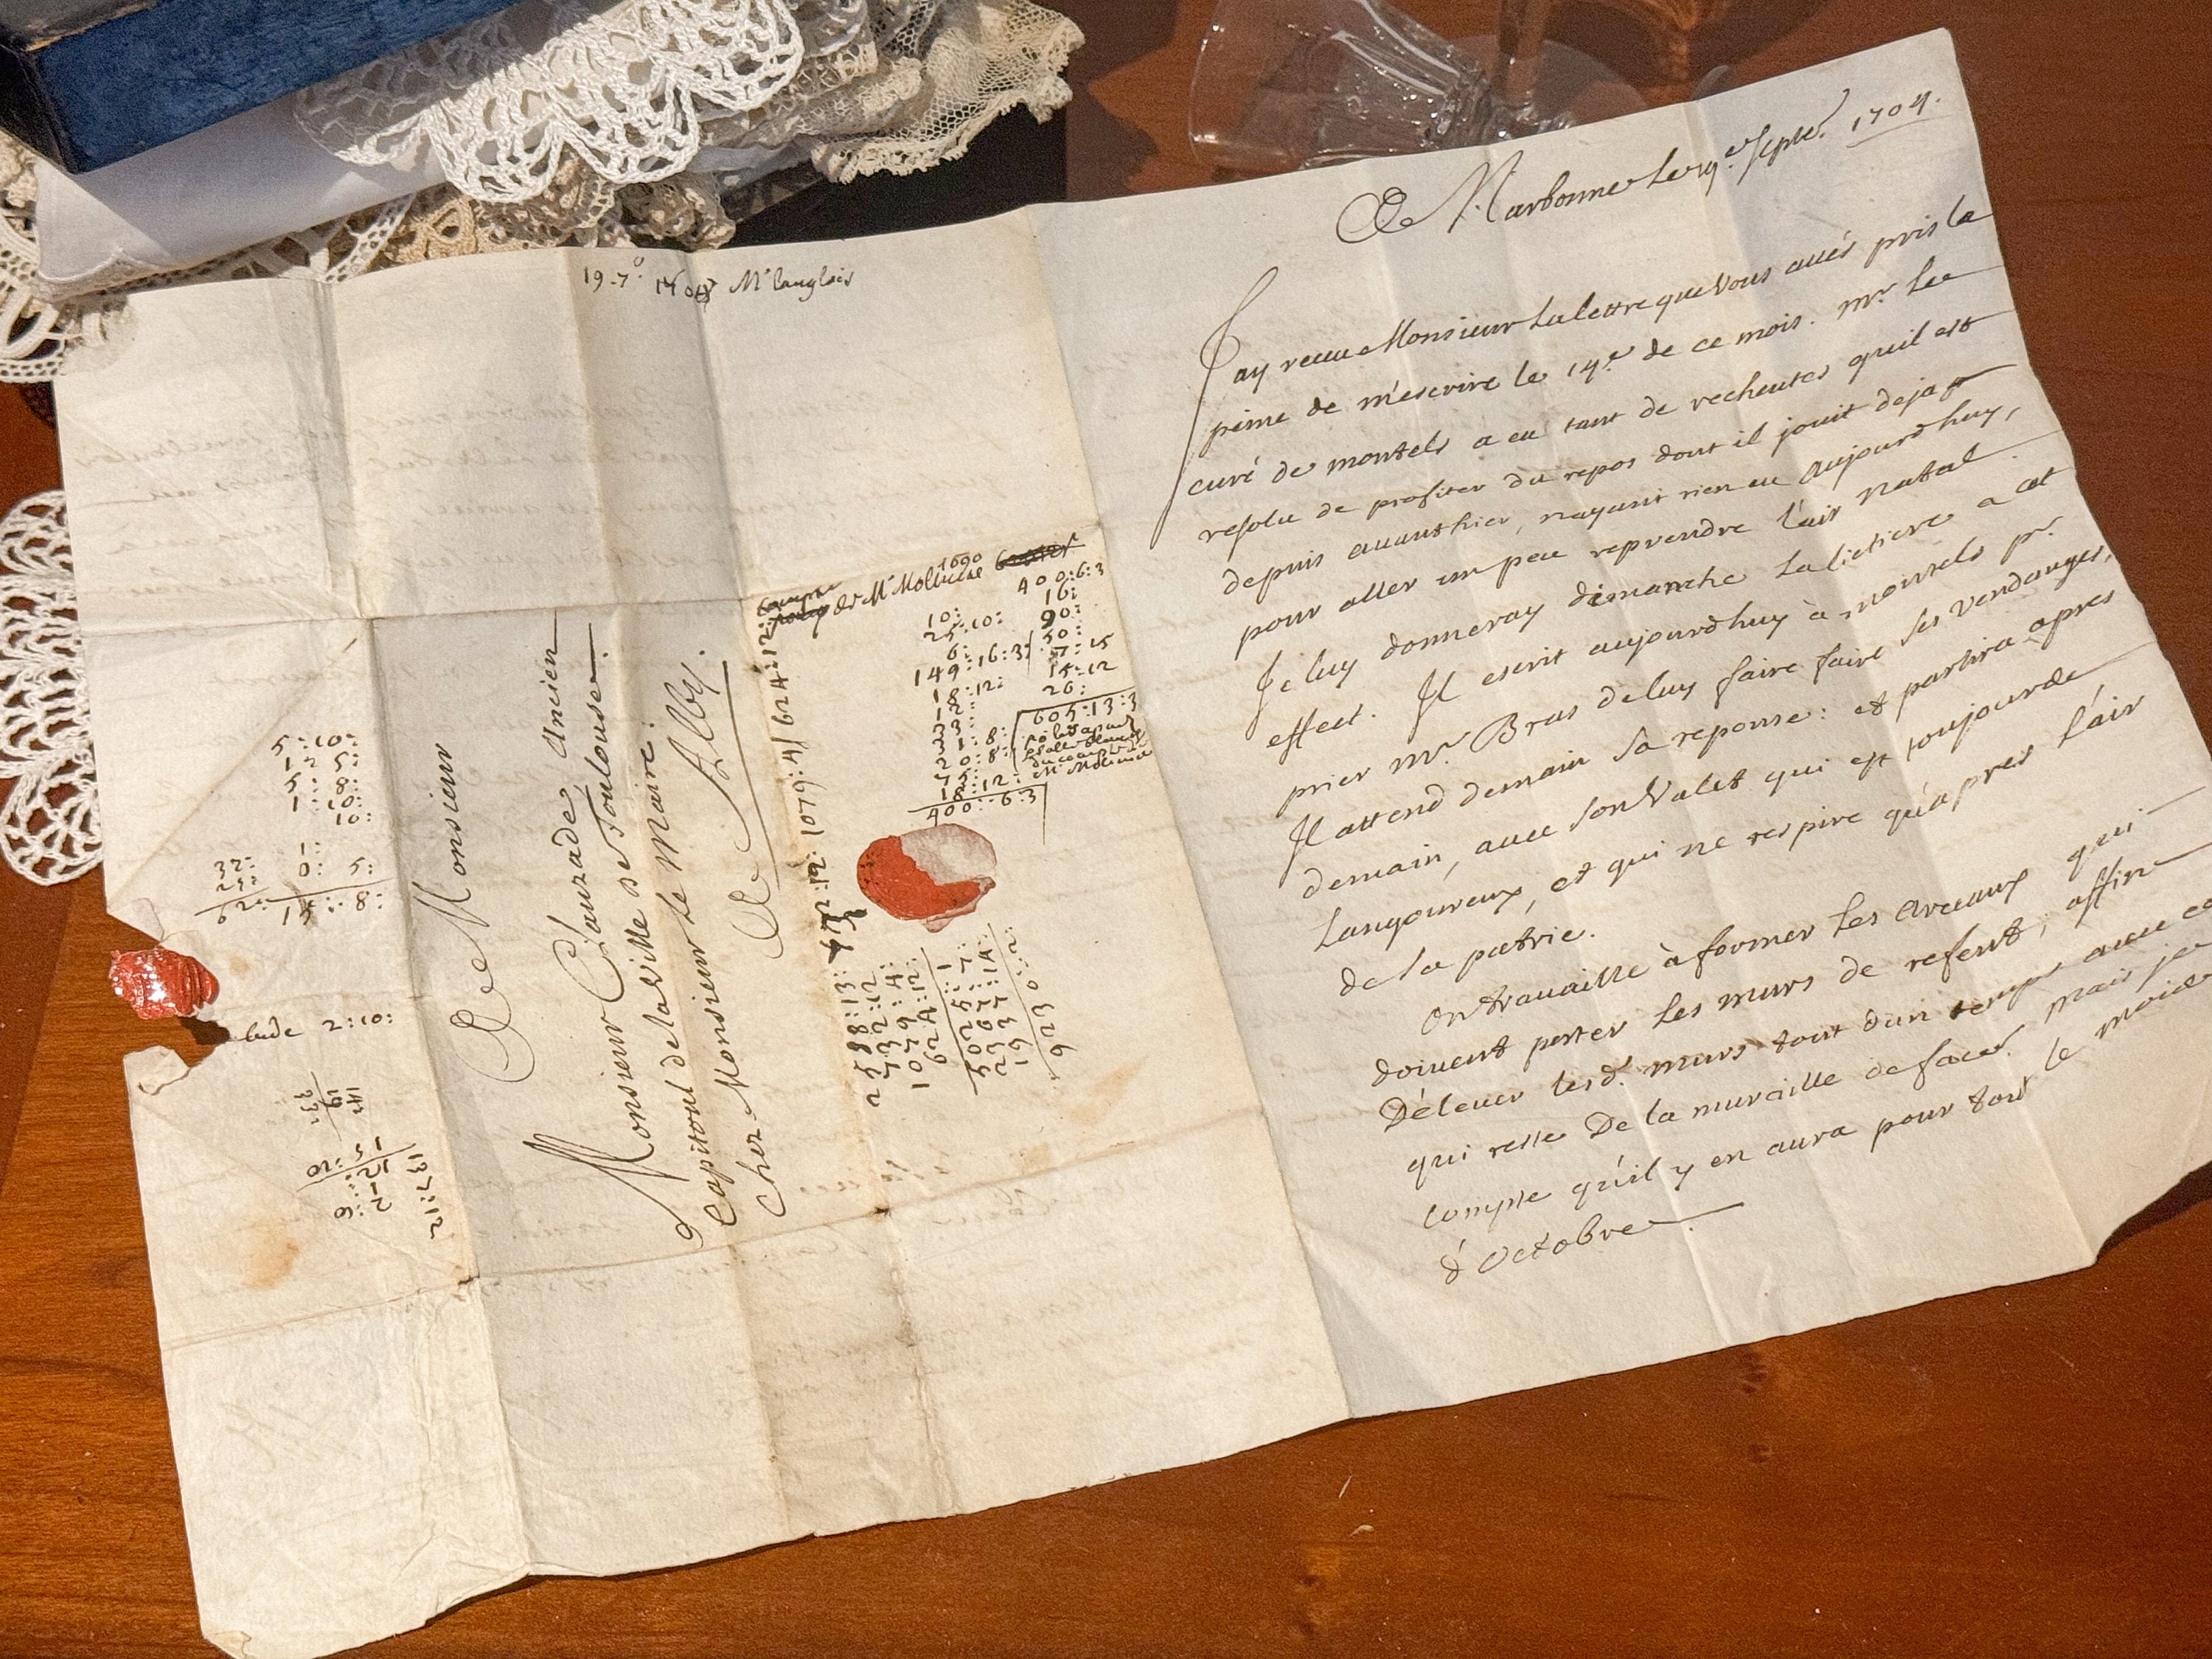 19 . 7.º 1708 Mr. Langlois
5: 10:
12 5:
5: 8:
1: 10:
10:
1:
32: 0: 5:
23:
62: 15: 8:
2: 10:
15: 10
12:
137: 12
A Monsieur
Monsieur Clauzade, Ancien
Capitoul de la Ville de Toulouse.
Chez Monsieur Le Maire:
A Alby.
de Mr. 1690
10:
25: 10:
6:
149: 16: 3:
18: 12:
12:
1: 8:
20: 8:
12:
400: 6: 3
400: 6: 3
16:
90:
50:
7: 15
15: 12
26:
605: 13: 3
1079: 4 / 624: 12:
2588: 13:
732: 12
1079: 4:
624: 12:
5025: 1
2367: 7:
1937: 14:
923 0: 2:
A Narbonne Le 19.e Septe. 1704.
J'ay receu Monsieur La lettre que Vous aués pris la
peine de m'escrire le 14.e de ce mois. Mr. Le
curé de montels a eu tant de recheutes qu'il est
resolu de profiter du repos dont il jouit deja
depuis auanthier, n'ayant rien eu aujourdhuy,
pour aller un peu reprendre l'air natal.
Je luy donneray dimanche La lictiere a cet
effect. Il escrit aujourdhuy à montels pr.
prier mr. Bras de luy faire faire ses vendanges,
Il attend demain sa reponse: et partira apres
demain, auec son Valet qui est toujours
Langoureux, et qui ne respire qu'apres l'air
de la patrie.
On trauaille à former Les Arceaux qui
doiuent porter Les murs de refent, affin
D'éleuer lesd. murs tout d'un temps auec ce
qui reste De la muraille de face. Mais je
compte qu'il y en aura pour tout le mois
d'Octobre.